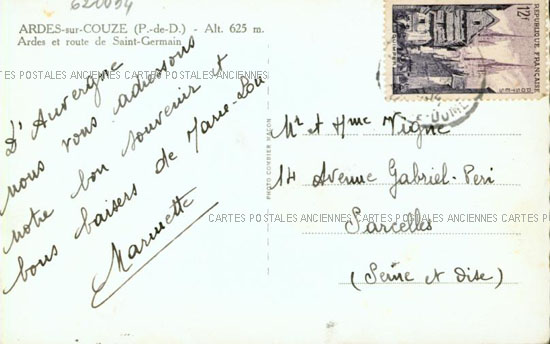 620094
ARDES-sur-COUZE (P.-de-D.) - Alt. 625 m.
Ardes et route de Saint-Germain
D'Auvergne
nous vous adressons
notre bon souvenir et
bons baisers de Marie-Lou
Marinette
PHOTO COMBIER MACON
12f
REPUBLIQUE FRANÇAISE
POSTES
DOME
Mr et Mme Vigne
14 Avenue Gabriel-Peri
Sarcelles
(Seine et Oise)
CARTES POSTALES ANCIENNES CARTES POSTALES ANCIENNES CARTES POSTALES ANCIENNES
CARTES POSTALES ANCIENNES CARTES POSTALES ANCIENNES CARTES POS